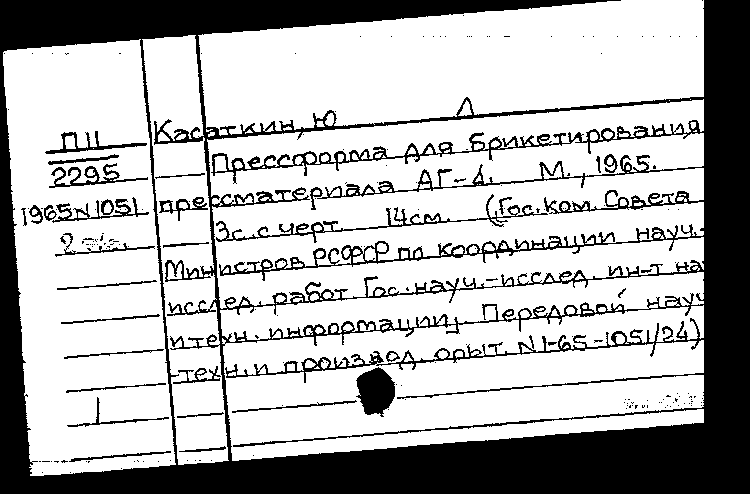 Касаткин, Ю
Л
П11
2295
1965 N 1051
Прессформа для брикетирования
прессматериала АГ-4. М., 1965.
3с. с черт. 14см. (Гос. ком. Совета
Министров РСФСР по координации науч.-
исслед. работ. Гос. науч.-исслед. ин-т на
и техн. информации. Передовой науч
-техн. и производ. опыт. N 1-65-1051/24)
1